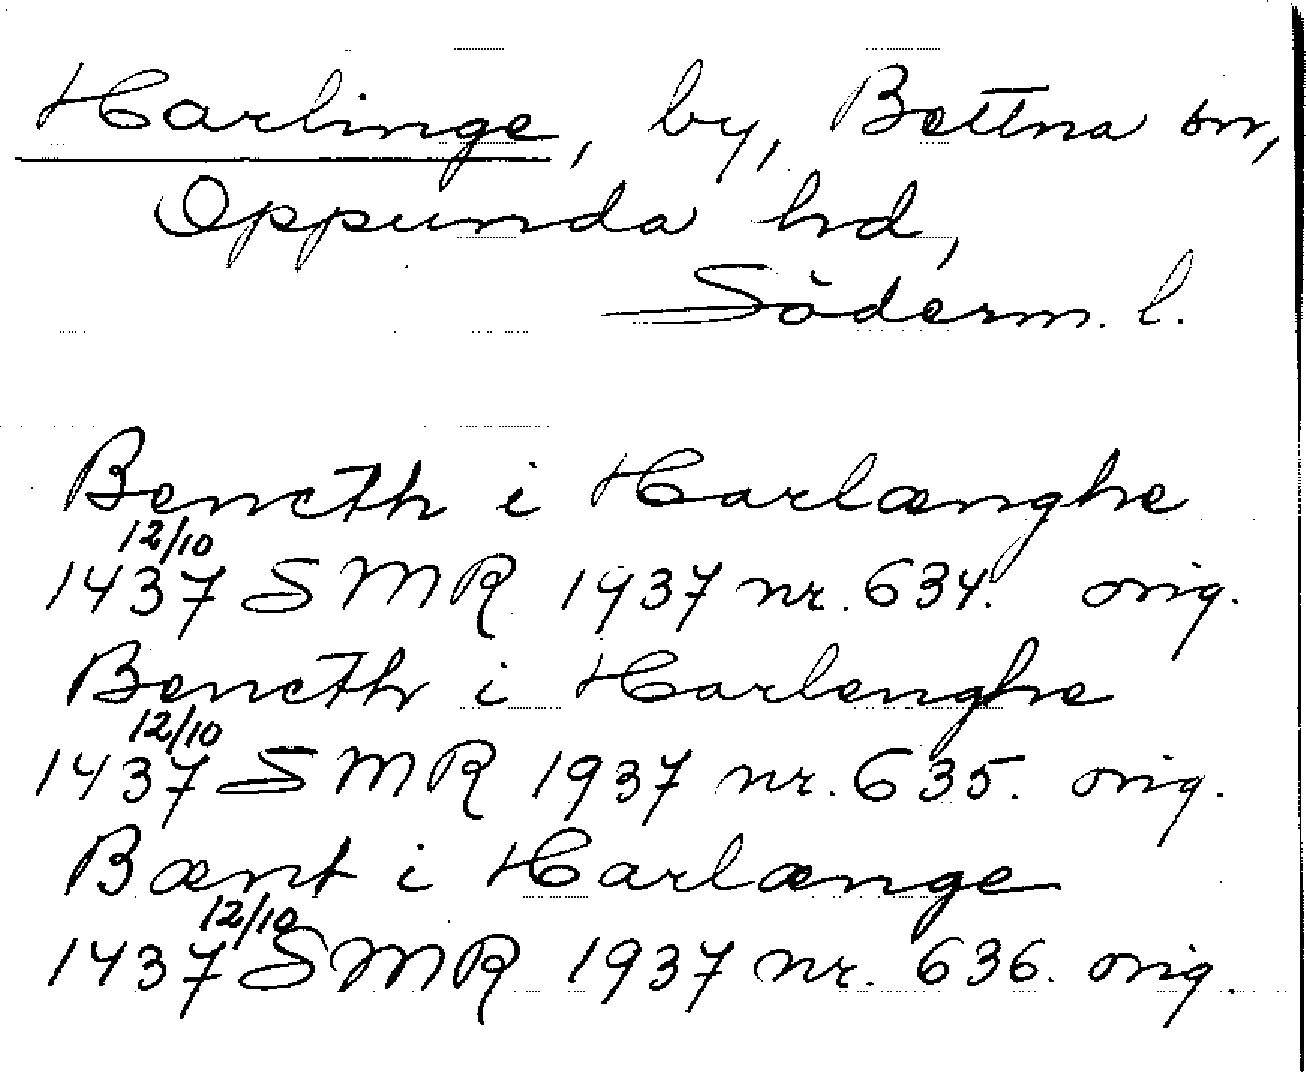 Harlinge, by, Bettna sn,
Oppunda hd,
Söderm. l.
Bencth i Harlænghe
12/10
1437 SMR 1937 nr. 634. orig.
Bencth i Harlenghe
12/10
1437 SMR 1937 nr. 635. orig.
Bænt i Harlænge
12/10
1437 SMR 1937 nr. 636. orig.